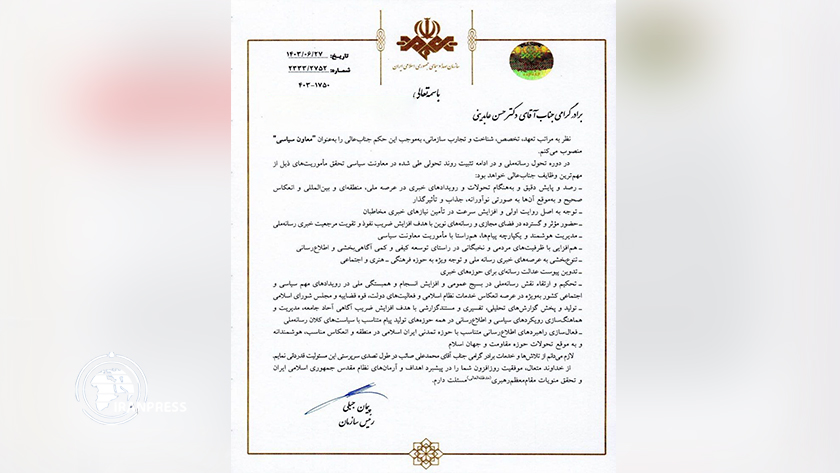 تاریخ: ۱۴۰۳/۰۶/۲۷
شماره: ۲۳۳۳/۲۷۵۲
۴۰۳-۱۷۵۰
سازمان صدا و سیمای جمهوری اسلامی ایران
باسمه‌تعالی
برادر گرامی جناب آقای دکتر حسن عابدینی
نظر به مراتب تعهد، تخصص، شناخت و تجارب سازمانی، به‌موجب این حکم جناب‌عالی را به‌عنوان "معاون سیاسی"
منصوب می‌کنم.
در دوره تحول رسانه‌ملی و در ادامه تثبیت روند تحولی طی شده در معاونت سیاسی تحقق مأموریت‌های ذیل از
مهم‌ترین وظایف جناب‌عالی خواهد بود:
ـ رصد و پایش دقیق و به‌هنگام تحولات و رویدادهای خبری در عرصه ملی، منطقه‌ای و بین‌المللی و انعکاس
صحیح و به‌موقع آن‌ها به صورتی نوآورانه، جذاب و تأثیرگذار
ـ توجه به اصل روایت اولی و افزایش سرعت در تأمین نیازهای خبری مخاطبان
ـ حضور مؤثر و گسترده در فضای مجازی و رسانه‌های نوین با هدف افزایش ضریب نفوذ و تقویت مرجعیت خبری رسانه‌ملی
ـ مدیریت هوشمند و یکپارچه پیام‌ها، هم‌راستا با مأموریت معاونت سیاسی
ـ هم‌افزایی با ظرفیت‌های مردمی و نخبگانی در راستای توسعه کیفی و کمی آگاهی‌بخشی و اطلاع‌رسانی
ـ تنوع‌بخشی به عرصه‌های خبری رسانه ملی و توجه ویژه به حوزه فرهنگی ـ هنری و اجتماعی
ـ تدوین پیوست عدالت رسانه‌ای برای حوزه‌های خبری
ـ تحکیم و ارتقاء نقش رسانه‌ملی در بسیج عمومی و افزایش انسجام و همبستگی ملی در رویدادهای مهم سیاسی و
اجتماعی کشور به‌ویژه در عرصه انعکاس خدمات نظام اسلامی و فعالیت‌های دولت، قوه قضاییه و مجلس شورای اسلامی
ـ تولید و پخش گزارش‌های تحلیلی، تفسیری و مستندگزارشی با هدف افزایش ضریب آگاهی آحاد جامعه، مدیریت و
هماهنگ‌سازی رویکردهای سیاسی و اطلاع‌رسانی در همه حوزه‌های تولید پیام متناسب با سیاست‌های کلان رسانه‌ملی
ـ فعال‌سازی راهبردهای اطلاع‌رسانی متناسب با حوزه تمدنی ایران اسلامی در منطقه و انعکاس مناسب، هوشمندانه
و به موقع تحولات حوزه مقاومت و جهان اسلام
لازم می‌دانم از تلاش‌ها و خدمات برادر گرامی جناب آقای محمدعلی صائب در طول تصدی سرپرستی این مسئولیت قدردانی نمایم.
از خداوند متعال، موفقیت روزافزون شما را در پیشبرد اهداف و آرمان‌های نظام مقدس جمهوری اسلامی ایران
و تحقق منویات مقام‌معظم‌رهبری(مدظله‌العالی) مسئلت دارم.
پیمان جبلی
رئیس سازمان
IRANPRESS